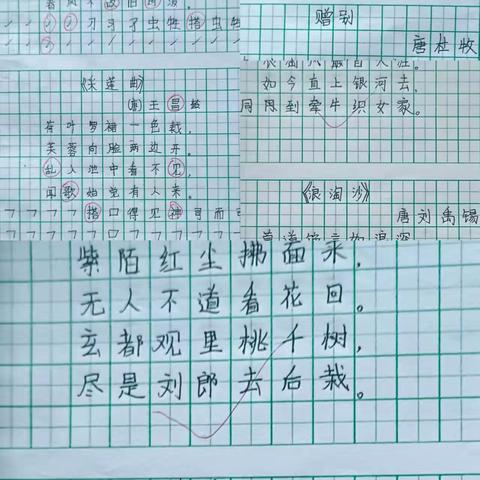 春风不改旧时波。
《采莲曲》
(唐)王昌龄
荷叶罗裙一色裁，
芙蓉向脸两边开。
乱入池中看不见，
闻歌始觉有人来。
赠别
唐杜牧
如今直上银河去，
到牵牛织女家。
《浪淘沙》
唐刘禹锡
莫道谗言如浪深
紫陌红尘拂面来，
无人不道看花回。
玄都观里桃千树，
尽是刘郎去后栽。